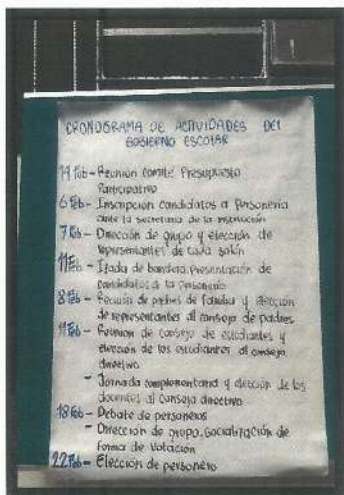 CRONOGRAMA DE ACTIVIDADES DEL
GOBIERNO ESCOLAR
14 Feb - Reunión comité Presupuesto
Participativo
6 Feb - Inscripción candidatos a Personería
ante la secretaria de la institución
7 Feb - Dirección de grupo y elección de
representantes de cada salón
11 Feb - Izada de bandera, presentación de
candidatos a la Personería
8 Feb - Reunión de padres de familia y elección
de representantes al consejo de padres
11 Feb - Reunión de consejo de estudiantes y
elección de los estudiantes al consejo
directivo
- Jornada complementaria y elección de los
docentes al consejo directivo
18 Feb - Debate de personeros
- Dirección de grupo, Socialización de
Forma de Votación
22 Feb - Elección de personero